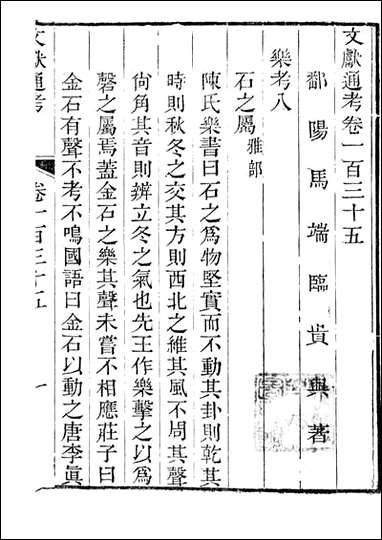 文獻通考卷一百三十五
鄱陽馬端臨貴與著
樂考八
石之屬雅部
陳氏樂書曰石之爲物堅實而不動其卦則乾其
時則秋冬之交其方則西北之維其風不周其聲
尙角其音則辨立冬之氣也先王作樂擊之以爲
磬之屬焉蓋金石之樂其聲未嘗不相應莊子曰
金石有聲不考不鳴國語曰金石以動之唐李眞
文獻通考
卷一百三十五
一